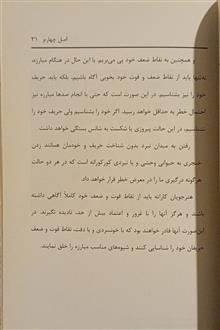 اصل چهارم ۳۱
و همچنین به نقاط ضعف خود پی می‌بریم. با این حال در هنگام مبارزه،
نه‌تنها باید از نقاط ضعف و قوت خود بخوبی آگاه باشیم، بلکه باید، حریف
خود را نیز بشناسیم. در این صورت است که حتی با انجام صدها مبارزه نیز
احتمال خطر به حداقل خواهد رسید. اگر خود را بشناسیم ولی حریف خود را
نشناسیم، در این حالت پیروزی یا شکست به شانس بستگی خواهد داشت.
رفتن به میدان نبرد بدون شناخت حریف و خودمان همانند زدن
خنجری به حیوانی وحشی و یا نبردی کورکورانه است که در هر دو حالت
هرگونه درگیری ما را در معرض خطر قرار خواهد داد.
هنرجویان کاراته باید از نقاط قوت و ضعف خود کاملاً آگاهی داشته
باشند و هرگز آنها را با غرور و اعتماد بیش از حد، نادیده نگیرند. در
این‌صورت آنها قادر خواهند بود که با خونسردی و با دقت، نقاط قوت و ضعف
حریفان خود را شناسایی کنند و شیوه‌های مناسب مبارزه را خلق نمایند.